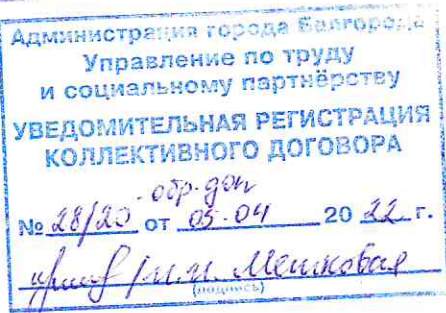 Администрация города Белгорода
Управление по труду
и социальному партнёрству
УВЕДОМИТЕЛЬНАЯ РЕГИСТРАЦИЯ
КОЛЛЕКТИВНОГО ДОГОВОРА
-обр. доп
№ 28/20 от 05.04 2022 г.
/ Мешковая
(подпись)